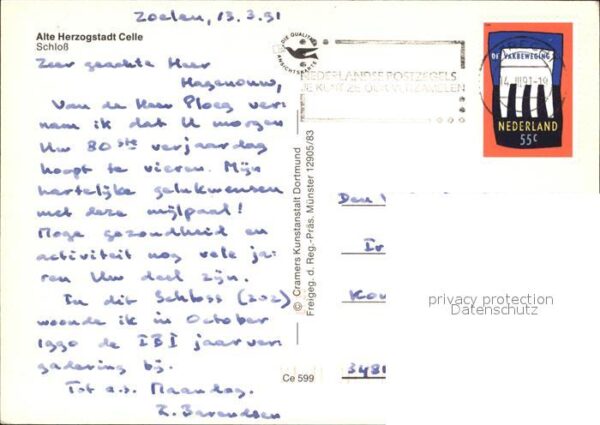 Zoelen, 13.3.91
Alte Herzogstadt Celle
Schloß
Zeer geachte Heer
Hagenouw,
Van de Heer Ploeg ver-
nam ik dat U morgen
Uw 80ste verjaardag
hoopt te vieren. Mijn
hartelijke gelukwensen
met deze mijlpaal!
Moge gezondheid en
activiteit nog vele ja-
ren Uw deel zijn.
In dit Schloss (zoz)
woonde ik in October
1990 de IBI jaarver-
gadering bij.
Tot a.s. Maandag.
Z. Barendsen
© Cramers Kunstanstalt Dortmund
Freigeg. d. Reg.-Präs. Münster 12905/83
Ce 599
DIE QUALITÄTS
ANSICHTSKARTE
NEDERLANDSE POSTZEGELS
JE KUNT ZE GAAN VERZAMELEN
14.III.91-19
DE VAKBEWEGING
NEDERLAND
55c
Den
Ir
Kon
3481
privacy protection
Datenschutz